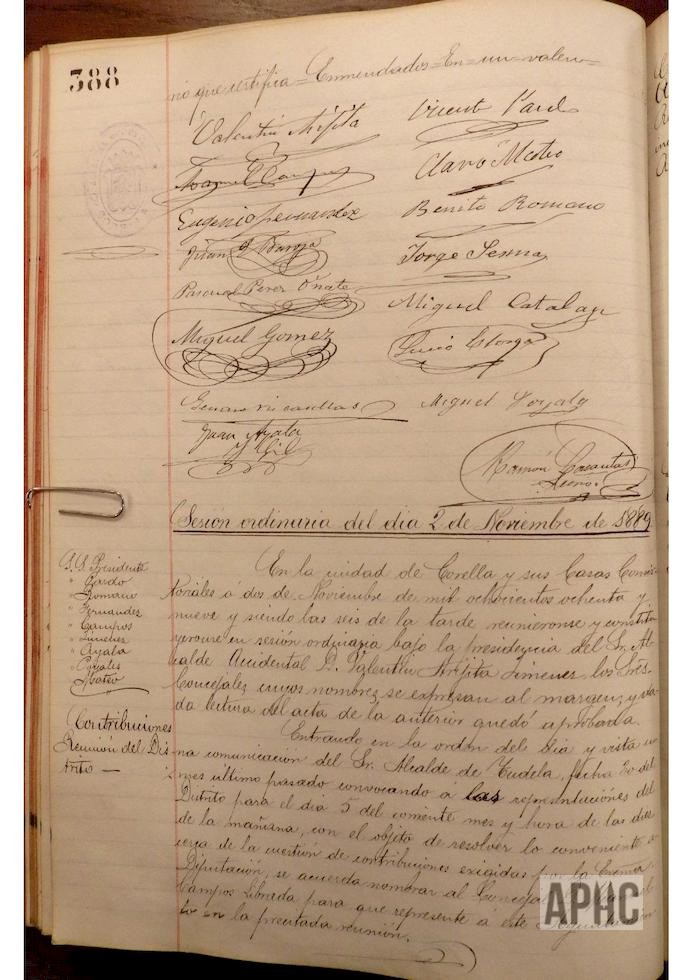 388
rio que certifica = Enmendados = En = un = valen =
Valentin Arpita Vicent Pard
Manuel Campos Claro Mateo
Eugenio Fernandez Benito Romano
Juan Jorge Serma
Pascual Perez Oñate Miguel Catalan
Miguel Gomez Lucio
Genaro Miguel
Juan Ayala
y Gil
Ramón
Secrio.
Sesión ordinaria del dia 2 de Noviembre de 1889
S. S. Presidente
" Pardo
" Romano
" Fernandez
" Campos
" Jimenez
" Ayala
"
" Mateo
En la ciudad de Corella y sus Casas Consis-
toriales á dos de Noviembre de mil ochocientos ochenta y
nueve y siendo las seis de la tarde reunieronse y constitu
yeronse en sesión ordinaria bajo la presidencia del Sr. Al-
calde Accidental D. Valentin Arpita Jimenez los Sres.
Concejales cuyos nombres se expresan al margen, y da-
da lectura del acta de la anterior quedó aprobada.
Contribuciones
Reunión del Dis
trito —
Entrando en la orden del dia y vista u
na comunicación del Sr. Alcalde de Tudela, fecha 30 del
mes último pasado convocando á las representaciones del
Distrito para el dia 5 del corriente mes y hora de las diez
de la mañana, con el objeto de resolver lo conveniente a
cerca de la cuestión de contribuciones exigidas por la Excma.
Diputación, se acuerda nombrar al Concejal
Campos Librada para que represente á este Ayuntamien
to en la precitada reunión.
APHC